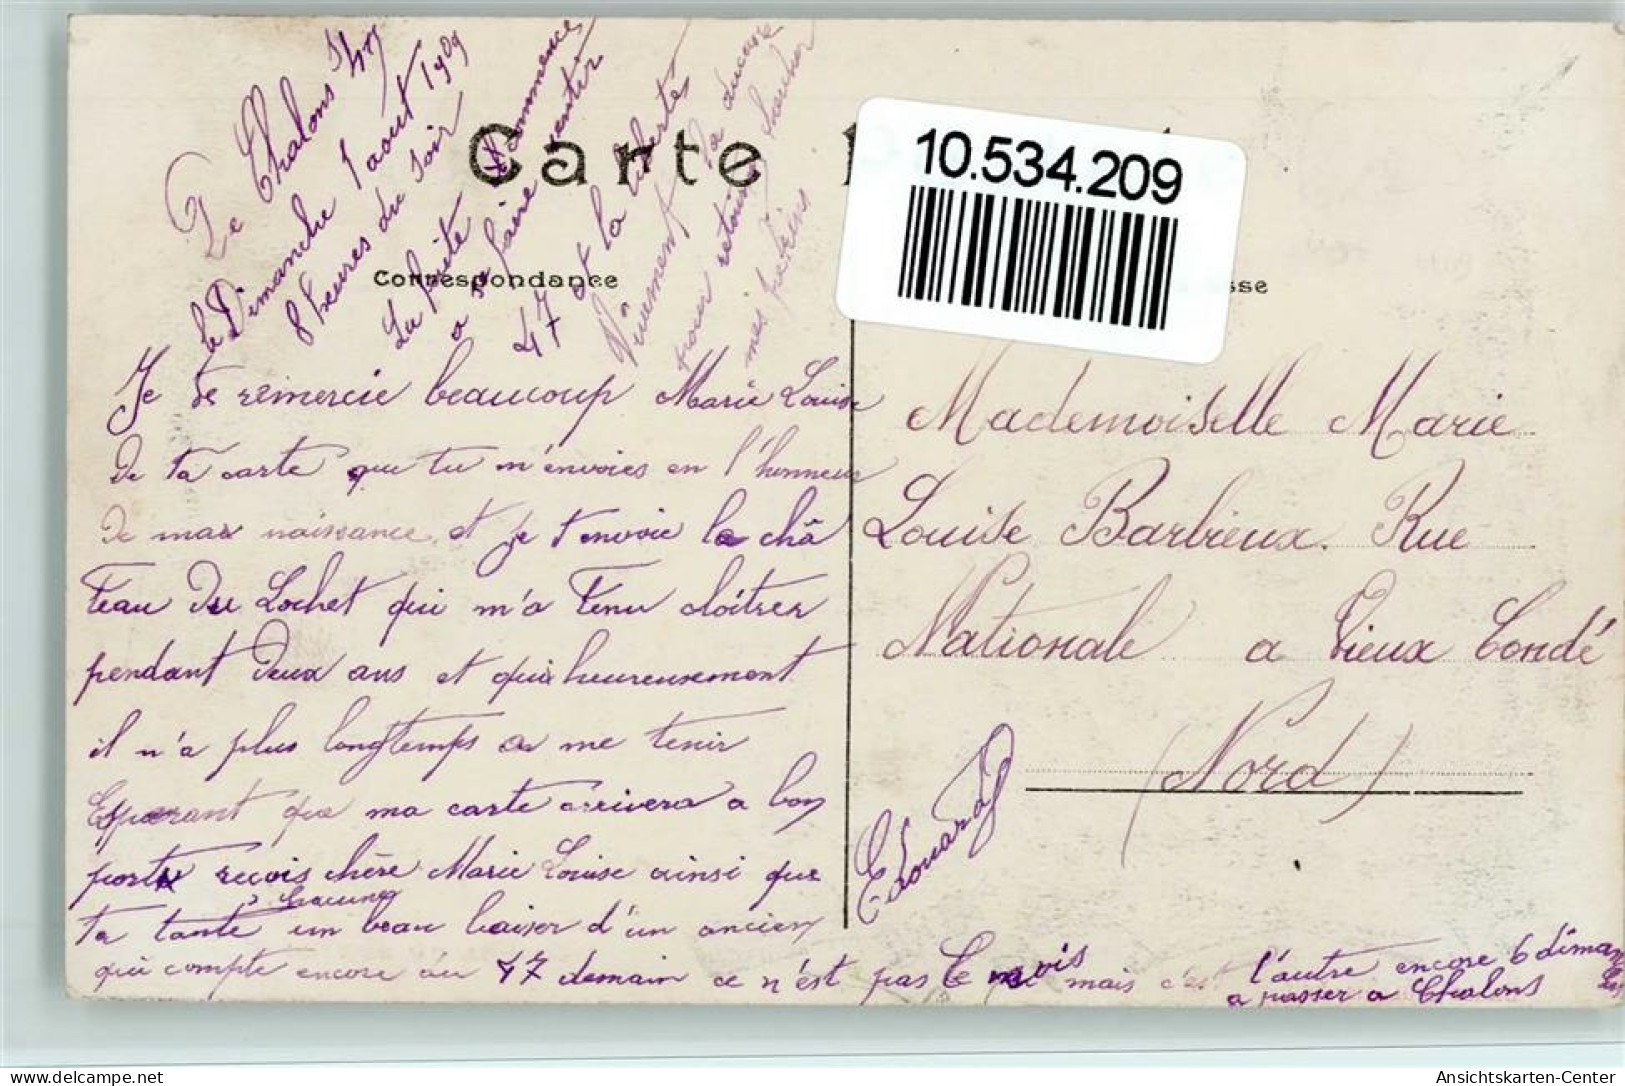 Carte
Correspondance
10.534.209
sse
De Chalons s/m
le Dimanche 1 aout 1909
8 heures du soir
La fuite commence
a se faire sentir
47 et la liberté
Vivement la ducasse
pour retour
mes
Je te remercie beaucoup Marie Louise
De ta carte que tu m'envoies en l'honneur
De naissance et je t'envoie le châ
teau Du Lochet qui m'a tenu cloîtrer
pendant Deux ans et qui heureusement
il n'a plus longtemps a me tenir
Esperant que ma carte arrivera a bon
port reçois chère Marie Louise ainsi que
ta tante chacune un beau baiser d'un ancien
qui compte encore au 47 demain ce n'est pas le mois mais c'est l'autre encore 6 diman
ches a passer a Chalons
Edouard
Mademoiselle Marie
Louise Barbieux. Rue
Nationale a Vieux Condé
(Nord)
delcampe.net
Ansichtskarten-Center